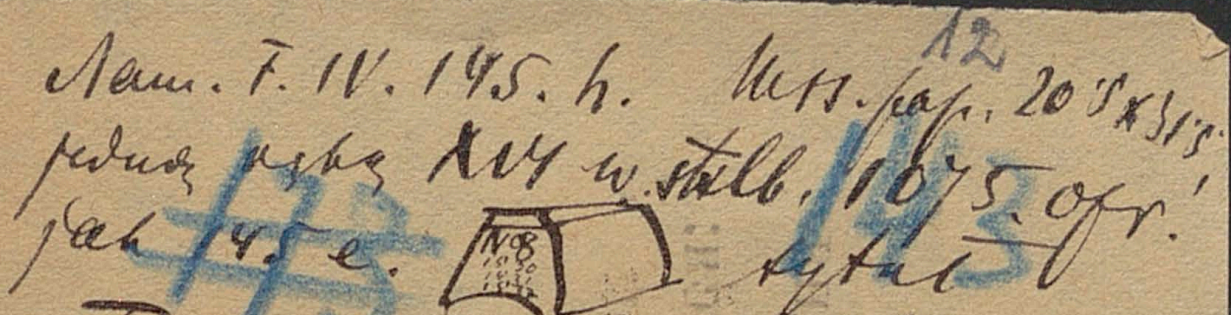 12
Nam. F. IV. 145. h. Mss. pap. 20'5 x 31'5
jedną ręką XVI w. stlb. 1075. opr.
jak 145 e. N 8 tytuł
143